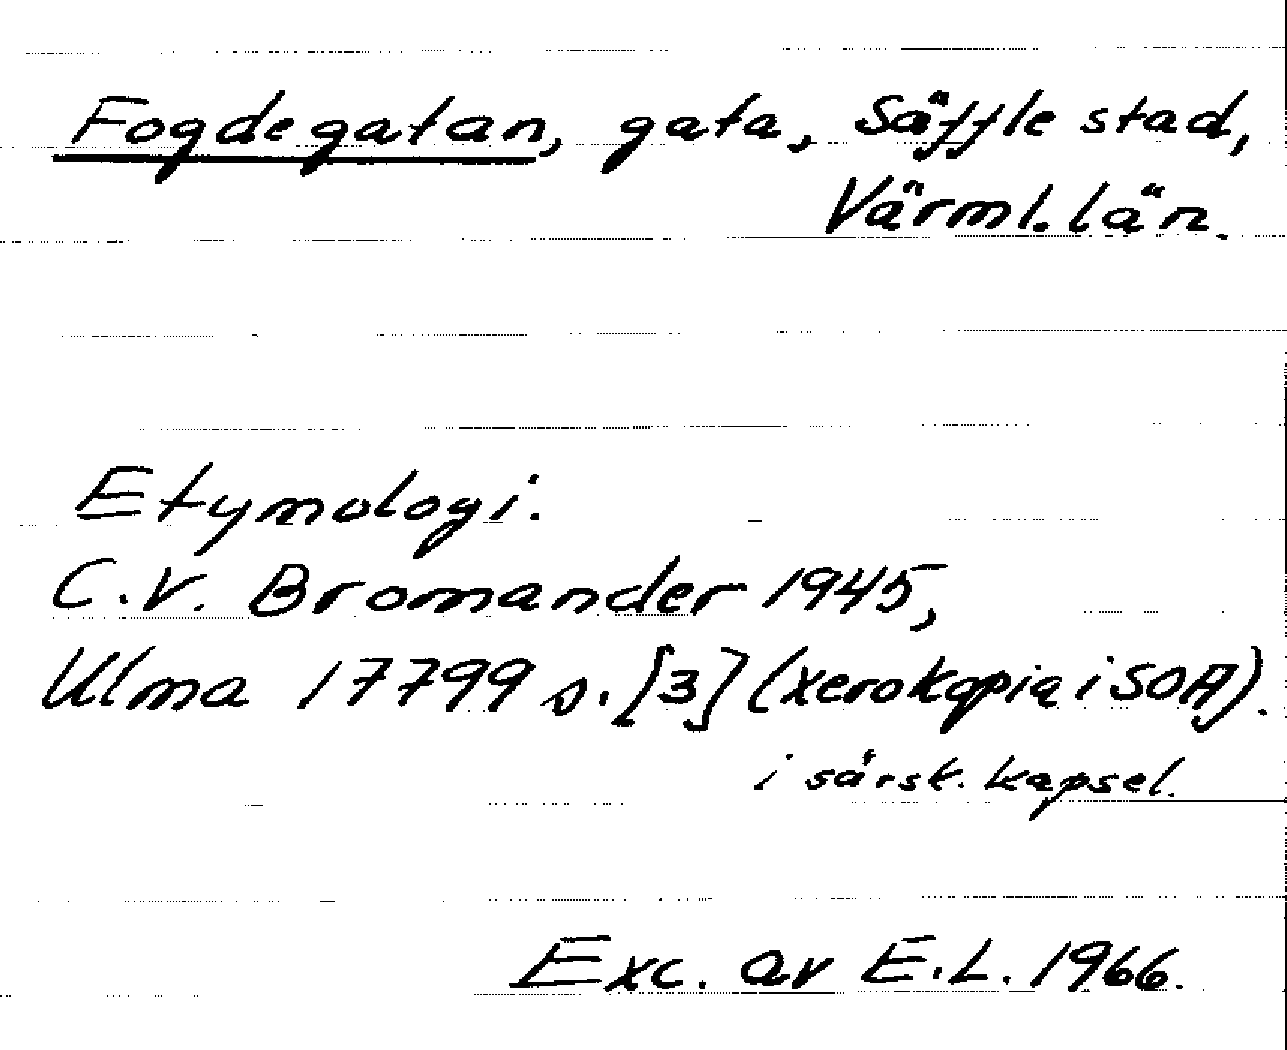 Fogdegatan, gata, Säffle stad,
Värml. län.
Etymologi.
C.V. Bromander 1945,
Ulma 17799 s. [3] (xerokopia i SOA).
i särsk. kapsel.
Exc. av E.L. 1966.